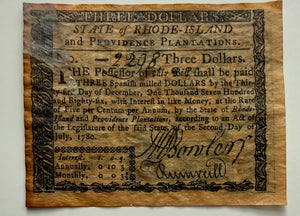 THREE DOLLARS.
STATE of RHODE-ISLAND
and PROVIDENCE PLANTATIONS.
No. 2208 Three Dollars.
THE Possessor of this Bill shall be paid
THREE Spanish milled DOLLARS by the Thirty-
first Day of December, One Thousand Seven Hundred
and Eighty-six, with Interest in like Money, at the Rate
of Five per Centum per Annum, by the State of Rhode-
Island and Providence Plantations, according to an Act of
the Legislature of the said State, of the Second Day of
July, 1780.
Interest.
Annually,
Monthly,